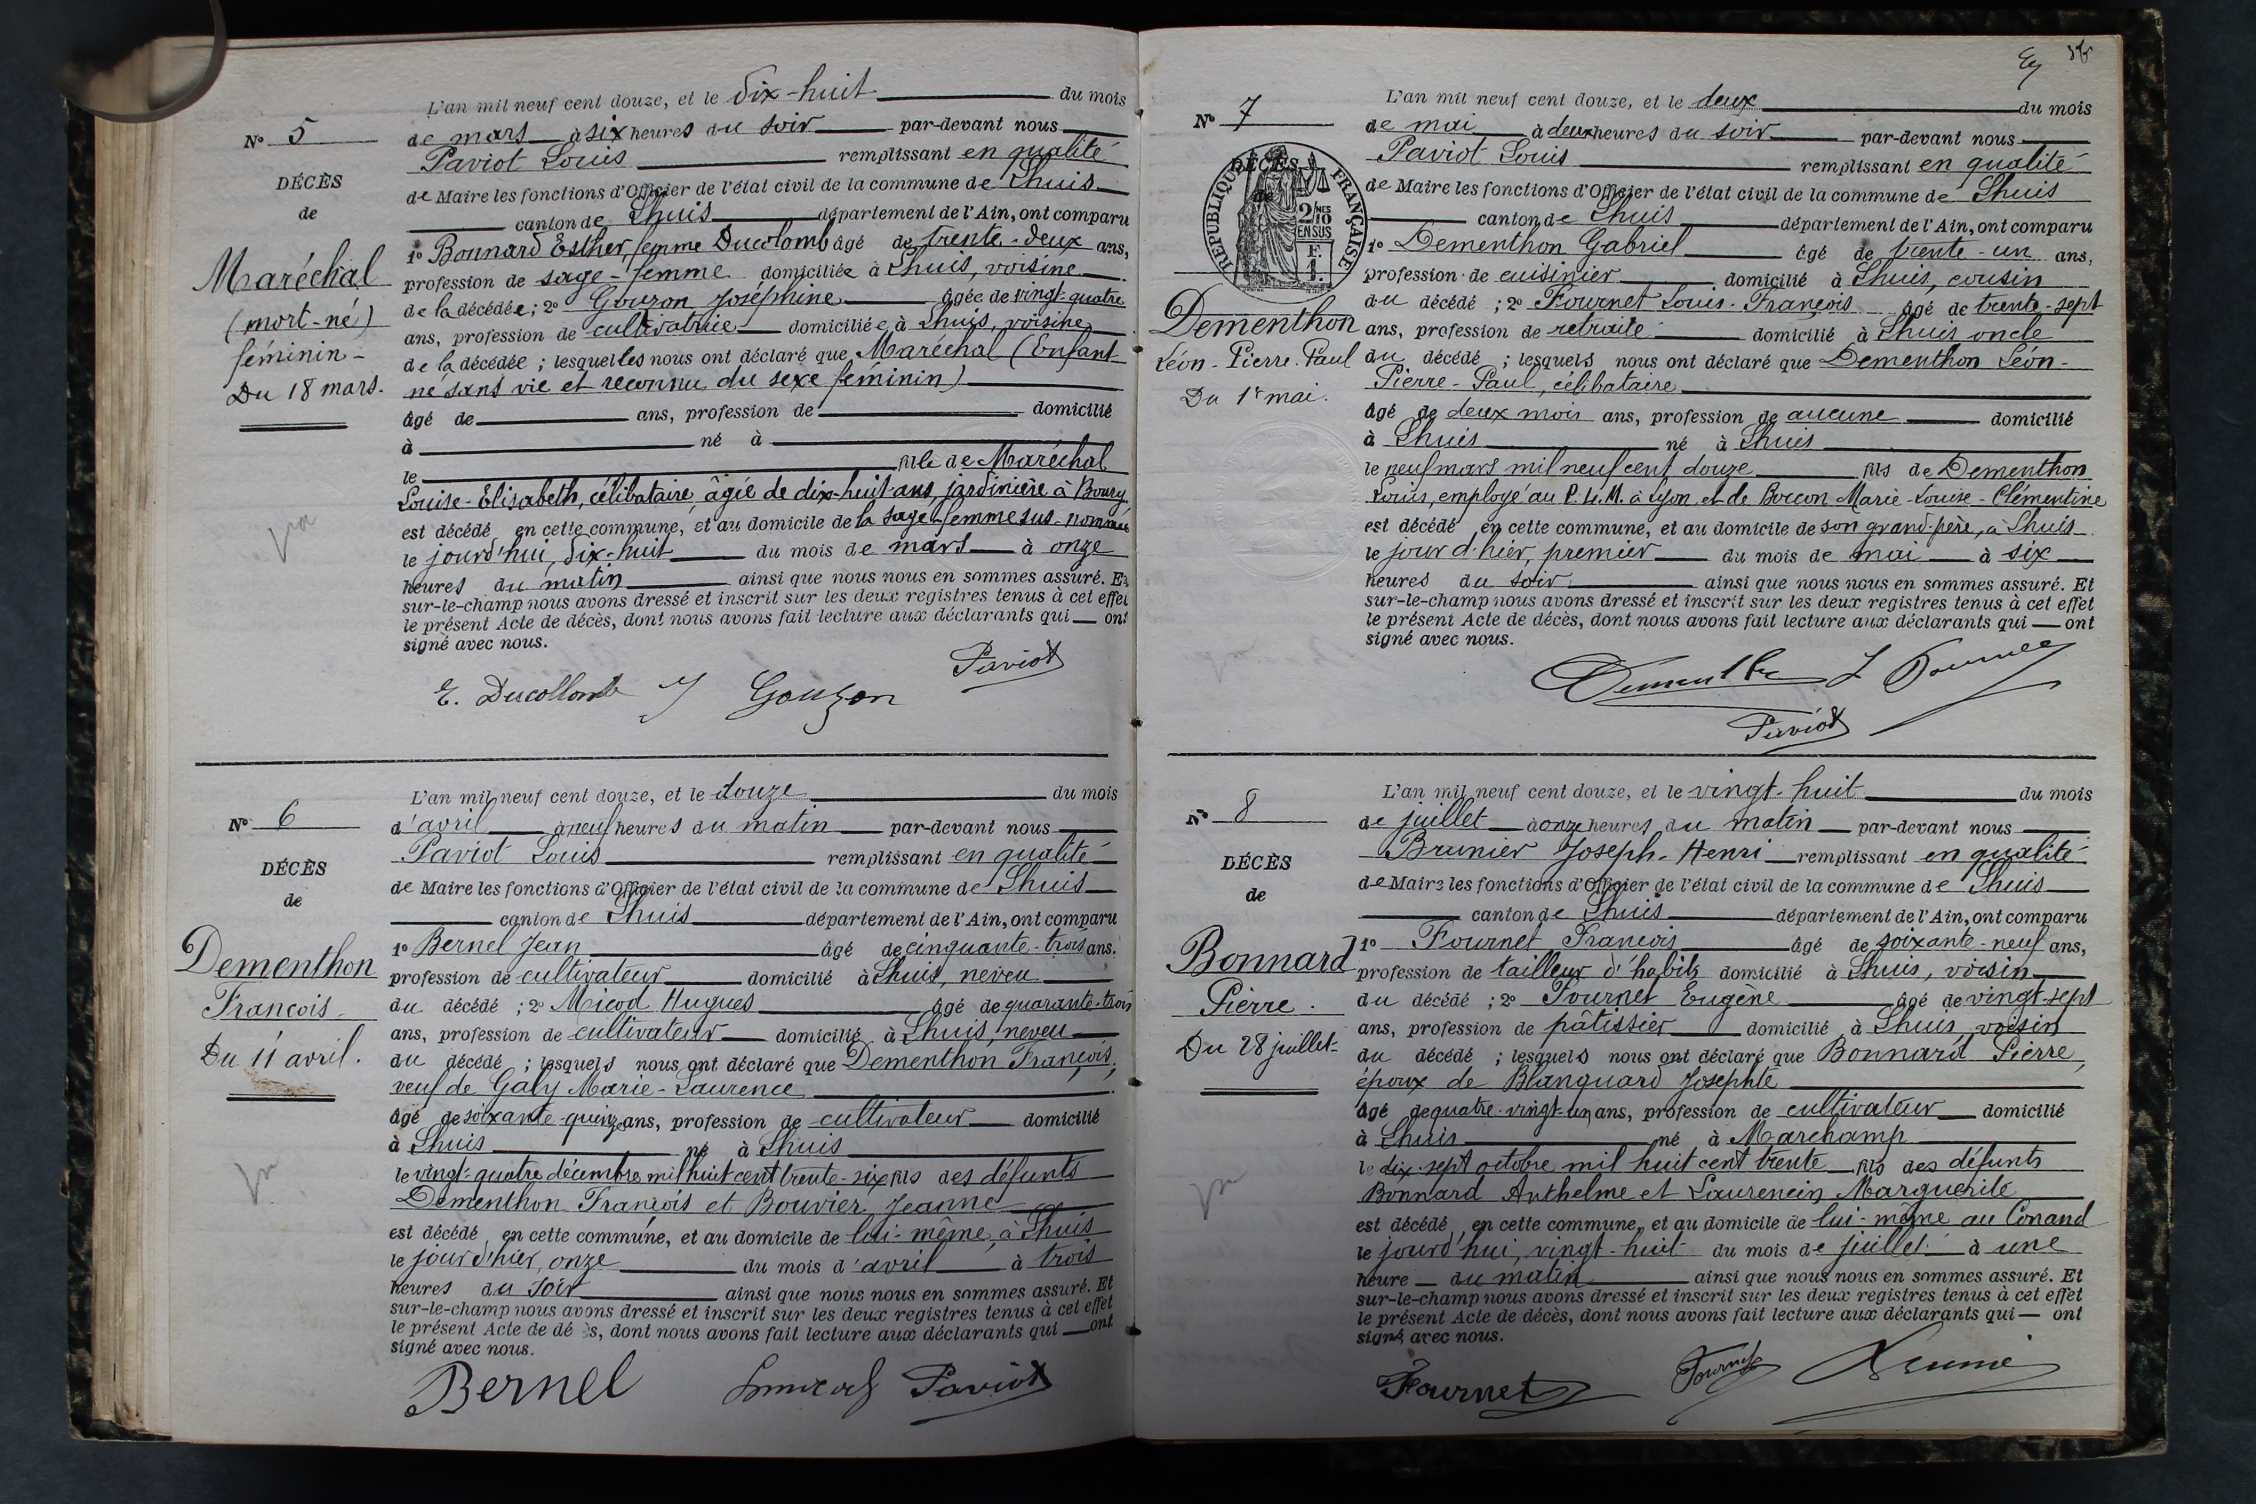 L'an mil neuf cent douze, et le dix-huit du mois
N° 5
de mars à six heures du soir par-devant nous
Paviot Louis remplissant en qualité
DÉCÈS
de Maire les fonctions d'Officier de l'état civil de la commune de Lhuis
de
canton de Lhuis département de l'Ain, ont comparu
1° Bonnard Esther, femme Ducolomb âgé de trente-deux ans,
Maréchal
profession de sage-femme domiciliée à Lhuis, voisine
de la décédée ; 2° Gouzon Joséphine âgée de vingt-quatre
(mort-né)
ans, profession de cultivatrice domiciliée à Lhuis, voisine
féminin-
de la décédée ; lesquelles nous ont déclaré que Maréchal (Enfant
Du 18 mars.
né sans vie et reconnu du sexe féminin)
âgé de ans, profession de domicilié
à né à
le fille de Maréchal
Louise-Elisabeth, célibataire, âgée de dix-huit ans, jardinière à Bourg
est décédé en cette commune, et au domicile de la sage-femme sus-nommée
le jourd'hui, dix-huit du mois de mars à onze
heures du matin ainsi que nous nous en sommes assuré. Et
sur-le-champ nous avons dressé et inscrit sur les deux registres tenus à cet effet
le présent Acte de décès, dont nous avons fait lecture aux déclarants qui ont
signé avec nous.
Paviot
E. Ducollomb J Gouzon
L'an mil neuf cent douze, et le douze du mois
N° 6
d'avril à neuf heures du matin par-devant nous
Paviot Louis remplissant en qualité
DÉCÈS
de Maire les fonctions d'Officier de l'état civil de la commune de Lhuis
de
canton de Lhuis département de l'Ain, ont comparu
1° Bernel Jean âgé de cinquante-trois ans.
Dementhon
profession de cultivateur domicilié à Lhuis, neveu
François
du décédé ; 2° Micod Hugues âgé de quarante-trois
ans, profession de cultivateur domicilié à Lhuis, neveu
Du 11 avril.
du décédé ; lesquels nous ont déclaré que Dementhon François,
veuf de Galy Marie-Laurence
âgé de soixante-quinze ans, profession de cultivateur domicilié
à Lhuis né à Lhuis
le vingt-quatre décembre mil huit cent trente-six fils des défunts
Dementhon François et Bouvier Jeanne
est décédé en cette commune, et au domicile de lui-même, à Lhuis
le jour d'hier, onze du mois d'avril à trois
heures du soir ainsi que nous nous en sommes assuré. Et
sur-le-champ nous avons dressé et inscrit sur les deux registres tenus à cet effet
le présent Acte de décès, dont nous avons fait lecture aux déclarants qui ont
signé avec nous.
Bernel Paviot
L'an mil neuf cent douze, et le deux du mois
N° 7
de mai à deux heures du soir par-devant nous
Paviot Louis remplissant en qualité
DÉCÈS
de Maire les fonctions d'Officier de l'état civil de la commune de Lhuis
de
RÉPUBLIQUE FRANÇAISE
2/10MES EN SUS
F. 1.
canton de Lhuis département de l'Ain, ont comparu
1° Dementhon Gabriel âgé de trente-un ans,
profession de cuisinier domicilié à Lhuis, cousin
du décédé ; 2° Fournet Louis-François âgé de trente-sept
Dementhon
ans, profession de retraité domicilié à Lhuis oncle
Léon-Pierre-Paul
du décédé ; lesquels nous ont déclaré que Dementhon Léon-
Pierre-Paul, célibataire
Du 1r mai.
âgé de deux mois ans, profession de aucune domicilié
à Lhuis né à Lhuis
le neuf mars mil neuf cent douze fils de Dementhon
Louis, employé au P.L.M. à Lyon, et de Boccon Marie-Louise-Clémentine
est décédé en cette commune, et au domicile de son grand-père, à Lhuis
le jour d'hier, premier du mois de mai à six
heures du soir ainsi que nous nous en sommes assuré. Et
sur-le-champ nous avons dressé et inscrit sur les deux registres tenus à cet effet
le présent Acte de décès, dont nous avons fait lecture aux déclarants qui ont
signé avec nous.
Dementhon L Fournet
Paviot
L'an mil neuf cent douze, et le vingt-huit du mois
N° 8
de juillet à onze heures du matin par-devant nous
Brunier Joseph-Henri remplissant en qualité
DÉCÈS
de Maire les fonctions d'Officier de l'état civil de la commune de Lhuis
de
canton de Lhuis département de l'Ain, ont comparu
1° Fournet François âgé de soixante-neuf ans,
Bonnard
profession de tailleur d'habits domicilié à Lhuis, voisin
Pierre.
du décédé ; 2° Fournet Eugène âgé de vingt-sept
ans, profession de pâtissier domicilié à Lhuis, voisin
Du 28 juillet-
du décédé ; lesquels nous ont déclaré que Bonnard Pierre,
époux de Blanquard Josephte
âgé de quatre-vingt-un ans, profession de cultivateur domicilié
à Lhuis né à Marchamp
le dix-sept octobre mil huit cent trente fils des défunts
Bonnard Anthelme et Laurencin Marguerite
est décédé en cette commune, et au domicile de lui-même au Conand
le jourd'hui, vingt-huit du mois de juillet à une
heure du matin ainsi que nous nous en sommes assuré. Et
sur-le-champ nous avons dressé et inscrit sur les deux registres tenus à cet effet
le présent Acte de décès, dont nous avons fait lecture aux déclarants qui ont
signé avec nous.
Fournet Fournet